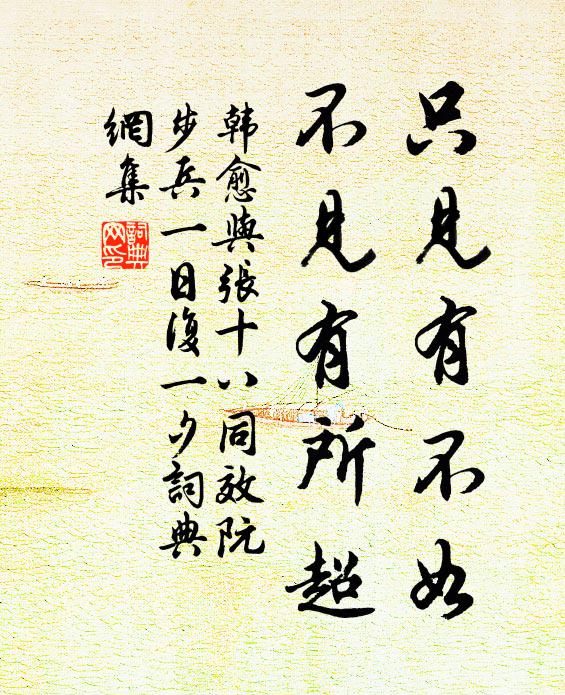 只見有不如
不見有所超
韓愈與張十八同效阮
步兵一日復一夕詞典
網集
詞典
网印